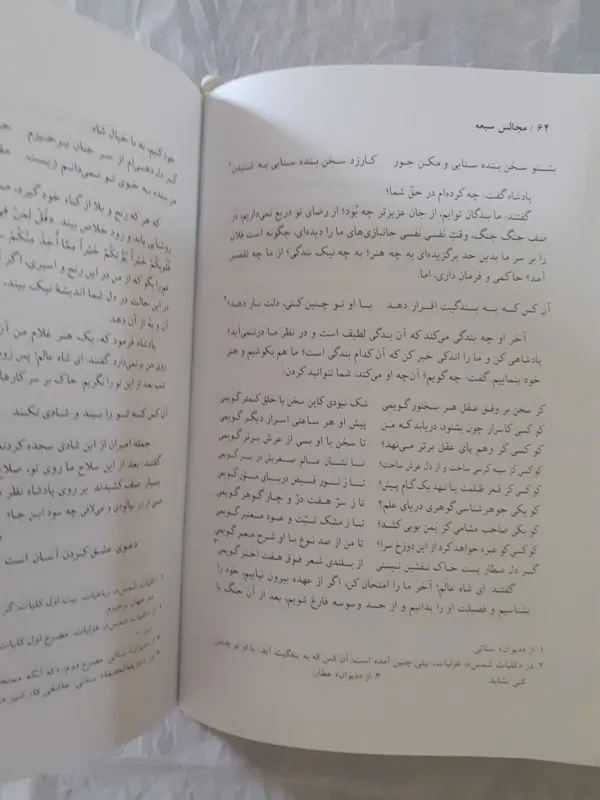 ۶۴ / مجالس سبعه
بشنو سخن بنده سنایی و مکن جور کارزد سخن بنده سنایی به شنیدن!
پادشاه گفت: چه کرده‌ام در حقّ شما؟
گفتند: ما بندگان توایم، از جان عزیزتر چه بُود؟ از رضای تو دریغ نمی‌داریم، در
صف جنگ جنگ، وقتِ نفسی نَفسی جانبازی‌های ما را دیده‌ای، چگونه است فلان
را بر سر ما بدین حد برگزیده‌ای به چه هنر؟ به چه نیک بندگی؟ از ما چه تقصیر
آمد؟ حاکمی و فرمان داری، اما:
آن کس که به بندگیت اقرار دهد با او تو چنین کنی، دلت بار دهد؟
آخر او چه بندگی می‌کند که آن بندگی لطیف است و در نظر ما درنمی‌آید؛
پادشاهی کن و ما را اندکی خبر کن که آن کدام بندگی است؟ ما هم بکوشیم و هنر
خود بنماییم. گفت: چه گویم؟ آن‌چه او می‌کند، شما نتوانید کردن:
گر سخن بر وفق عقل هر سخنور گویمی شک نبودی کاین سخن با خلق کمتر گویمی
کو کسی کاسرار چون بشنود، دریابد که من پیش او هر ساعتی اسرار دیگر گویمی
کو کسی کز وهم پای عقل برتر می‌نهد؟ تا سخن با او بسی از عرش برتر گویمی
کو کسی کز سینه کرسی ساخت و از دل عرش ساخت؟ تا نشان عالم صغریش در بر گویمی
کو کسی کز قعر ظلمت پا نهد یک گام پیش؟ تا ز نور فیض دریای منوّر گویمی
کو یکی جوهرشناسی گوهری دریای علم؟ تا ز سرّ هفت درّ و چار گوهر گویمی
کو یکی صاحب مشامی کز یمن بویی کشد؟ تا ز مشک تبّت و عود معنبر گویمی
کو کسی کو عبره خواهد کرد از این دوزخ سرا؟ تا من از صد نوع با او شرح معبر گویمی
گر دل عطار پست خاک نفشین نیستی از بلندی شعر فوق هفت اختر گویمی
گفتند: ای شاه عالم! آخر ما را امتحان کن، اگر از عهده بیرون نیاییم، خود را
بشناسیم و فضیلت او را بدانیم و از حسد وسوسه فارغ شویم، بعد از آن جنگ با
۱. از «دیوان» سنائی
۲. در «کلیات شمس»، غزلیات، بیتی چنین آمده است: آن کس که به بندگیت آید، با او تو چنین
کنی نشاید. ۳. از «دیوان» عطار.
خود کنیم، نه با خیال شاه
گر دل دهی‌ام از سر جان برخیزم
من بنده به خوی تو نمی‌دانم زیست
که هر که رنج و بلا از گناه خود گیرد،
روشنایی یابد و زود خلاص بیند.
غم را بگو که از من در این رنج و اسیری، اگر
در این حالت در دل شما اندیشهٔ نیک بیند،
آن و بهْ از آن دهد.
پادشاه فرمود که، یک هنر غلام من آن
روی من برنمی‌دارد گفتند: ای شاه عالم! پس زود
شب بعد از این تو را نگریم خاک بر سر کارها
آن کس که تو را بیند و شادی نکند
جمله امیران از این شادی سجده کردند
گفتند: بعد از این سلاح ما روی تو، صلاح
بسیار صف کشیدند. بر روی پادشاه نظر
مسی از زر بیالودی و می‌لافی چه سود این جا؛
دعوی عشق کردن آسان است